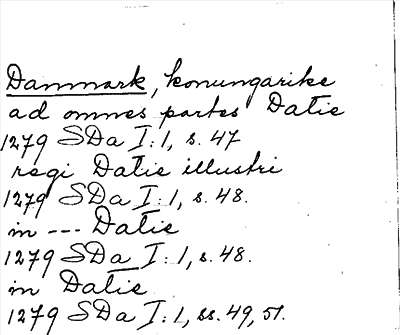 Danmark, konungarike
ad omnes partes Datie
1279 SDa I:1, s. 47
regi Datie illustri
1279 SDa I:1, s. 48.
in --- Datie
1279 SDa I:1, s. 48.
in Datie
1279 SDa I:1, ss. 49, 51.